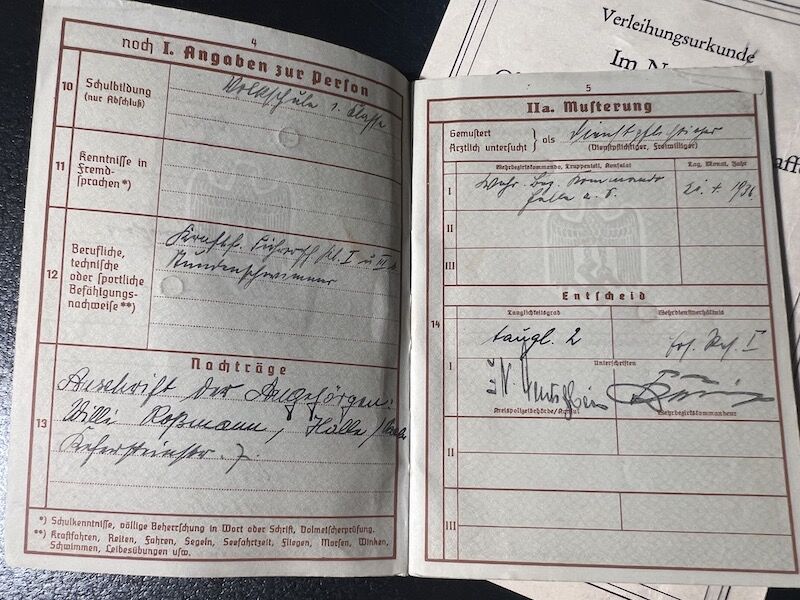 4
noch I. Angaben zur Person
10
Schulbildung
(nur Abschluß)
Volkschule 1. Classe
11
Kenntnisse in
Fremd-
sprachen*)
12
Berufliche,
technische
oder sportliche
Befähigungs-
nachweise**)
Kraftf. Führersch Kl. I u III
Stundenschwimmer
Nachträge
13
Anschrift der Angehörgen:
Willi Roßmann, Halle /
Kefersteinstr. 7.
*) Schulkenntnisse, völlige Beherrschung in Wort oder Schrift, Dolmetscherprüfung.
**) Kraftfahren, Reiten, Fahren, Segeln, Seefahrtzeit, Fliegen, Morsen, Winken,
Schwimmen, Leibesübungen usw.
Verleihungsurkunde
Im N
5
IIa. Musterung
Gemustert
Ärztlich untersucht } als
Dienstpflichtiger
(Dienstpflichtiger, Freiwilliger)
Wehrbezirkskommando, Truppenteil, Konsulat
Tag, Monat, Jahr
I
Wehr. Bez. Kommando
Halle a. S.
1936
II
III
Entscheid
14
Tauglichkeitsgrad
Wehrdienstverhältnis
taugl. 2
Ers. Res. I
I
Unterschriften
Kreispolizeibehörde/Konsul
Wehrbezirkskommandeur
II
III